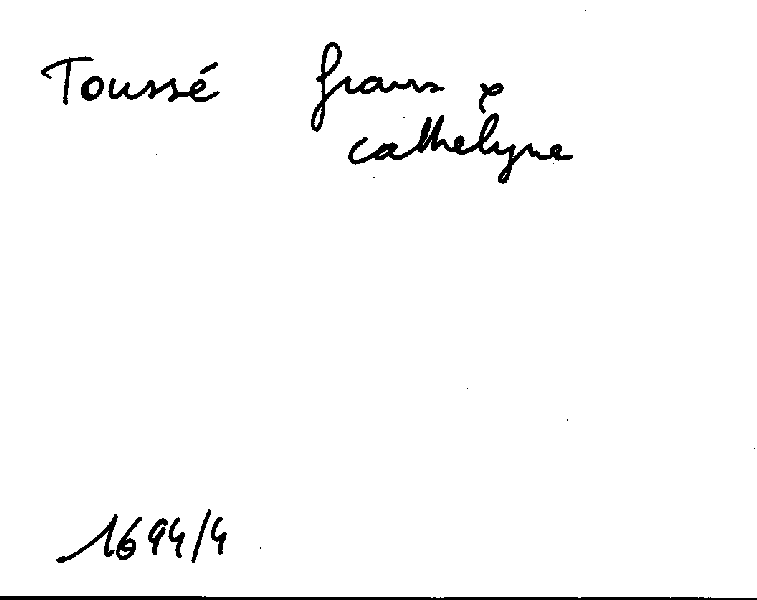 Toussé frans &
cathelyne
1694/4